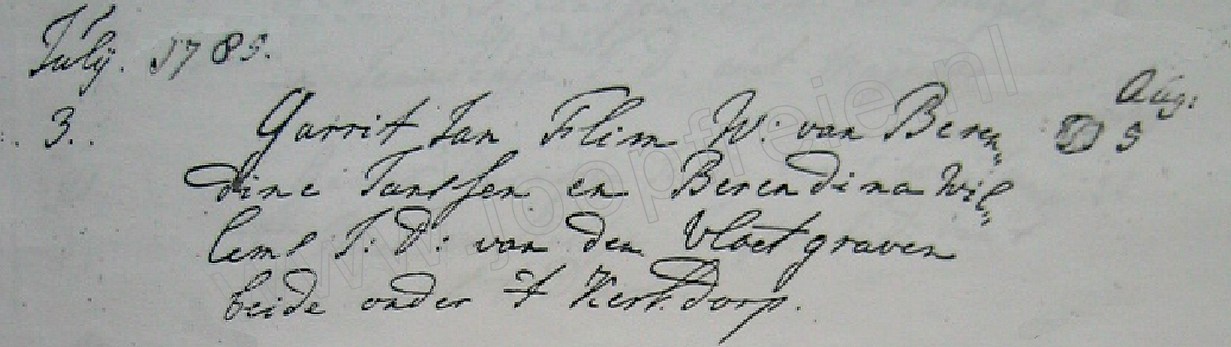 July. 1785.
3. Garrit Jan Flim W: van Beren„ Aug: 5
dine Janssen en Berendina Wil„
lems J: D: van den Vloetgraven
beide onder 't Kerkdorp.
www.joopfreie.nl